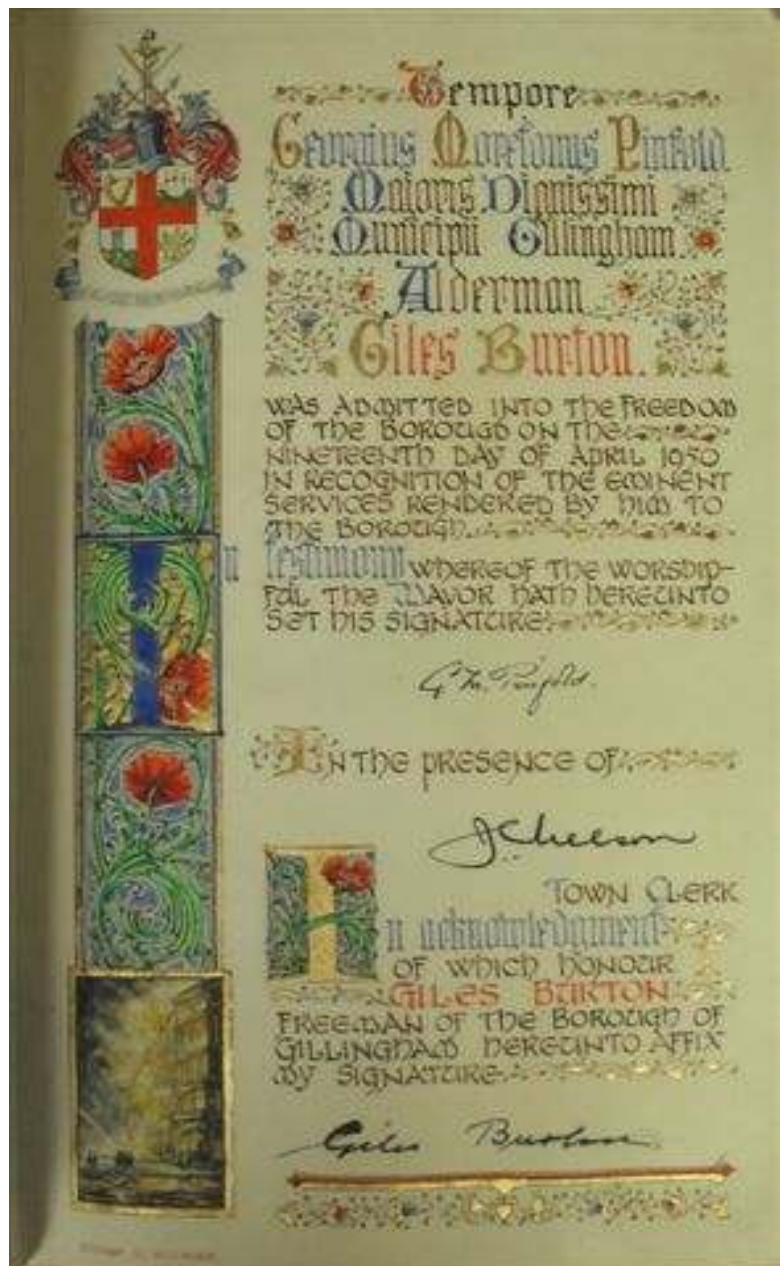 Tempore
Georgius Moretonus Pinfold
Maioris Dignissimi
Municipii Gillingham
Alderman
Giles Burton.
WAS ADMITTED INTO THE FREEDOM
OF THE BOROUGH ON THE
NINETEENTH DAY OF APRIL 1950
IN RECOGNITION OF THE EMINENT
SERVICES RENDERED BY HIM TO
THE BOROUGH.
In testimony WHEREOF THE WORSHIP-
FUL THE MAYOR HATH HEREUNTO
SET HIS SIGNATURE
G M. Pinfold.
IN THE PRESENCE OF
TOWN CLERK
In acknowledgment
OF WHICH HONOUR
GILES BURTON
FREEMAN OF THE BOROUGH OF
GILLINGHAM HEREUNTO AFFIX
MY SIGNATURE
Giles Burton